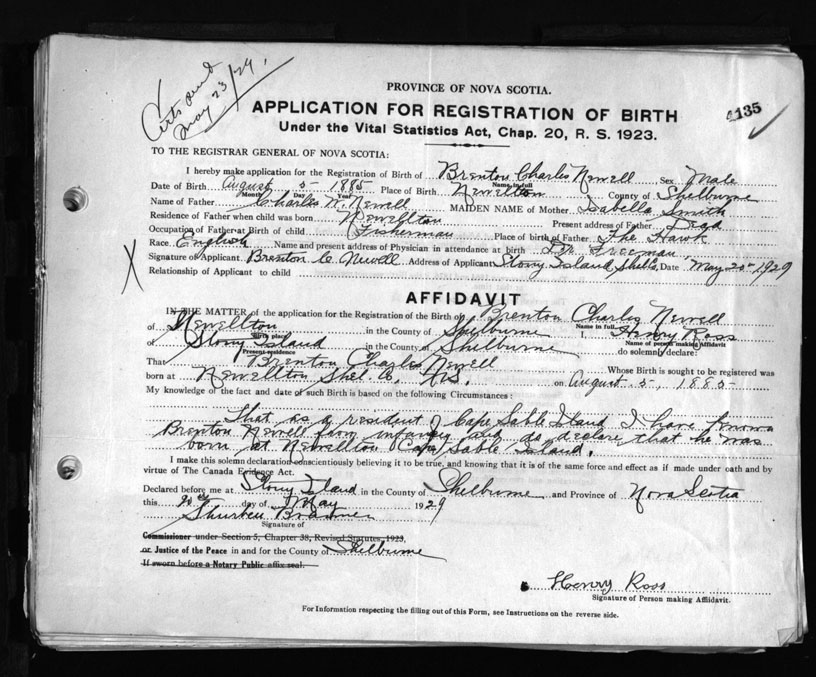 Certs sent
May 23/29.
PROVINCE OF NOVA SCOTIA.
APPLICATION FOR REGISTRATION OF BIRTH
4135
Under the Vital Statistics Act, Chap. 20, R. S. 1923.
TO THE REGISTRAR GENERAL OF NOVA SCOTIA:
I hereby make application for the Registration of Birth of Brenton Charles Newell Sex Male
Name in full
Date of Birth August 5 1885 Place of Birth Newellton County of Shelburne
Month Day Year
Name of Father Charles W. Newell MAIDEN NAME of Mother Isabella Smith
Residence of Father when child was born Newellton Present address of Father Dead
Occupation of Father at Birth of child Fisherman Place of birth of Father The Hawk
Race English Name and present address of Physician in attendance at birth Dr. Freeman
Signature of Applicant Brenton C Newell Address of Applicant Stony Island Shelb. Date May 20 1929
Relationship of Applicant to child
AFFIDAVIT
IN THE MATTER of the application for the Registration of the Birth of Brenton Charles Newell
Name in full
of Newellton in the County of Shelburne I, Henry Ross
Birth place Name of person making Affidavit
of Stony Island in the County of Shelburne do solemnly declare:
Present residence
That Brenton Charles Newell Whose Birth is sought to be registered was
born at Newellton Shel. Co. N.S. on August 5, 1885
My knowledge of the fact and date of such Birth is based on the following Circumstances:
That as a resident of Cape Sable Island I have known
Brenton Newell from infancy and do declare that he was
born at Newellton Cape Sable Island.
I make this solemn declaration conscientiously believing it to be true, and knowing that it is of the same force and effect as if made under oath and by
virtue of The Canada Evidence Act.
Declared before me at Stony Island in the County of Shelburne and Province of Nova Scotia
this 20 day of May 1929
Signature of
Commissioner under Section 5, Chapter 38, Revised Statutes, 1923,
or Justice of the Peace in and for the County of Shelburne
If sworn before a Notary Public affix seal.
Henry Ross
Signature of Person making Affidavit.
For Information respecting the filling out of this Form, see Instructions on the reverse side.